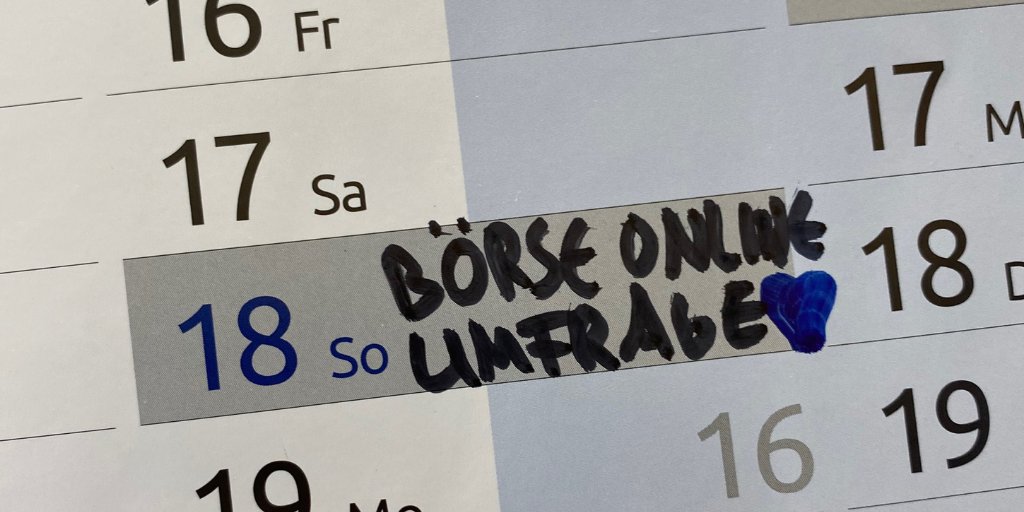 16 Fr
17 Sa
18 So
BÖRSE ONLINE
UMFRAGE
19 Mo
17 M
18 D
16
19